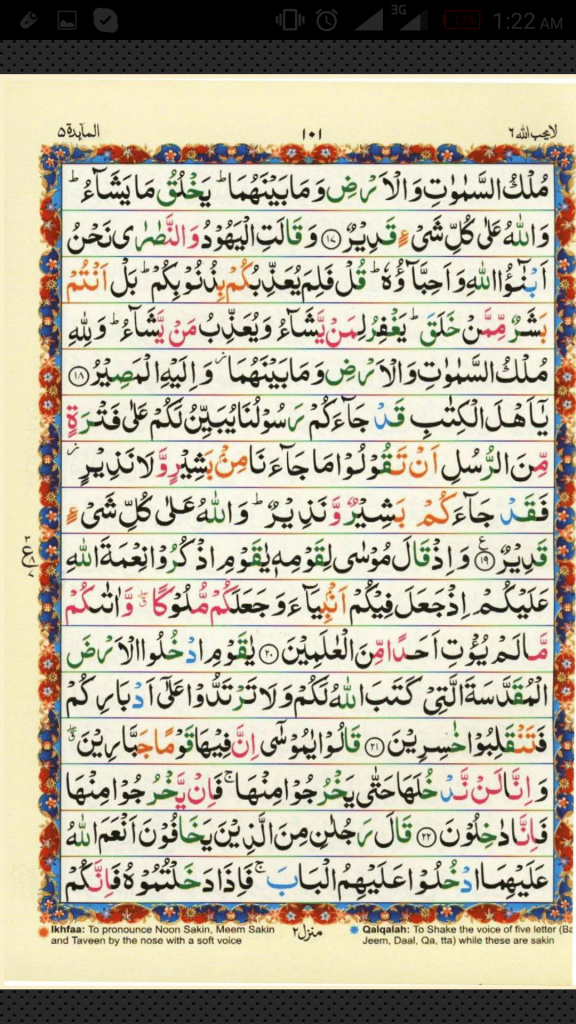 3G
13%
1:22 AM
لایحب اللہ ٦
١٠١
المآىِٕدة ٥
مُلْكُ السَّمٰوٰتِ وَالْاَرْضِ وَمَا بَيْنَهُمَا ؕ يَخْلُقُ مَا يَشَآءُ ؕ
وَاللّٰهُ عَلٰى كُلِّ شَىْءٍ قَدِيْرٌ ﴿۱۷﴾ وَقَالَتِ الْيَهُوْدُ وَالنَّصٰرٰى نَحْنُ
اَبْنٰٓؤُا اللّٰهِ وَاَحِبَّآؤُهٗ ؕ قُلْ فَلِمَ يُعَذِّبُكُمْ بِذُنُوْبِكُمْ ؕ بَلْ اَنْتُمْ
بَشَرٌ مِّمَّنْ خَلَقَ ؕ يَغْفِرُ لِمَنْ يَّشَآءُ وَيُعَذِّبُ مَنْ يَّشَآءُ ؕ وَلِلّٰهِ
مُلْكُ السَّمٰوٰتِ وَالْاَرْضِ وَمَا بَيْنَهُمَا ز وَاِلَيْهِ الْمَصِيْرُ ﴿۱۸﴾
يٰۤاَهْلَ الْكِتٰبِ قَدْ جَآءَكُمْ رَسُوْلُنَا يُبَيِّنُ لَكُمْ عَلٰى فَتْرَةٍ
مِّنَ الرُّسُلِ اَنْ تَقُوْلُوْا مَا جَآءَنَا مِنْۢ بَشِيْرٍ وَّلَا نَذِيْرٍ ز
فَقَدْ جَآءَكُمْ بَشِيْرٌ وَّنَذِيْرٌ ؕ وَاللّٰهُ عَلٰى كُلِّ شَىْءٍ
قَدِيْرٌ ﴿۱۹﴾ وَاِذْ قَالَ مُوْسٰى لِقَوْمِهٖ يٰقَوْمِ اذْكُرُوْا نِعْمَةَ اللّٰهِ
عَلَيْكُمْ اِذْ جَعَلَ فِيْكُمْ اَنْۢبِيَآءَ وَجَعَلَكُمْ مُّلُوْكًا ۖ وَّاٰتٰىكُمْ
مَّا لَمْ يُؤْتِ اَحَدًا مِّنَ الْعٰلَمِيْنَ ﴿۲۰﴾ يٰقَوْمِ ادْخُلُوا الْاَرْضَ
الْمُقَدَّسَةَ الَّتِىْ كَتَبَ اللّٰهُ لَكُمْ وَلَا تَرْتَدُّوْا عَلٰٓى اَدْبَارِكُمْ
فَتَنْقَلِبُوْا خٰسِرِيْنَ ﴿۲۱﴾ قَالُوْا يٰمُوْسٰٓى اِنَّ فِيْهَا قَوْمًا جَبَّارِيْنَ ۖ
وَاِنَّا لَنْ نَّدْخُلَهَا حَتّٰى يَخْرُجُوْا مِنْهَا ۚ فَاِنْ يَّخْرُجُوْا مِنْهَا
فَاِنَّا دٰخِلُوْنَ ﴿۲۲﴾ قَالَ رَجُلٰنِ مِنَ الَّذِيْنَ يَخَافُوْنَ اَنْعَمَ اللّٰهُ
عَلَيْهِمَا ادْخُلُوْا عَلَيْهِمُ الْبَابَ ۚ فَاِذَا دَخَلْتُمُوْهُ فَاِنَّكُمْ
Ikhfaa: To pronounce Noon Sakin, Meem Sakin
and Taveen by the nose with a soft voice
منزل ٢
Qalqalah: To Shake the voice of five letter (Ba
Jeem, Daal, Qa, tta) while these are sakin